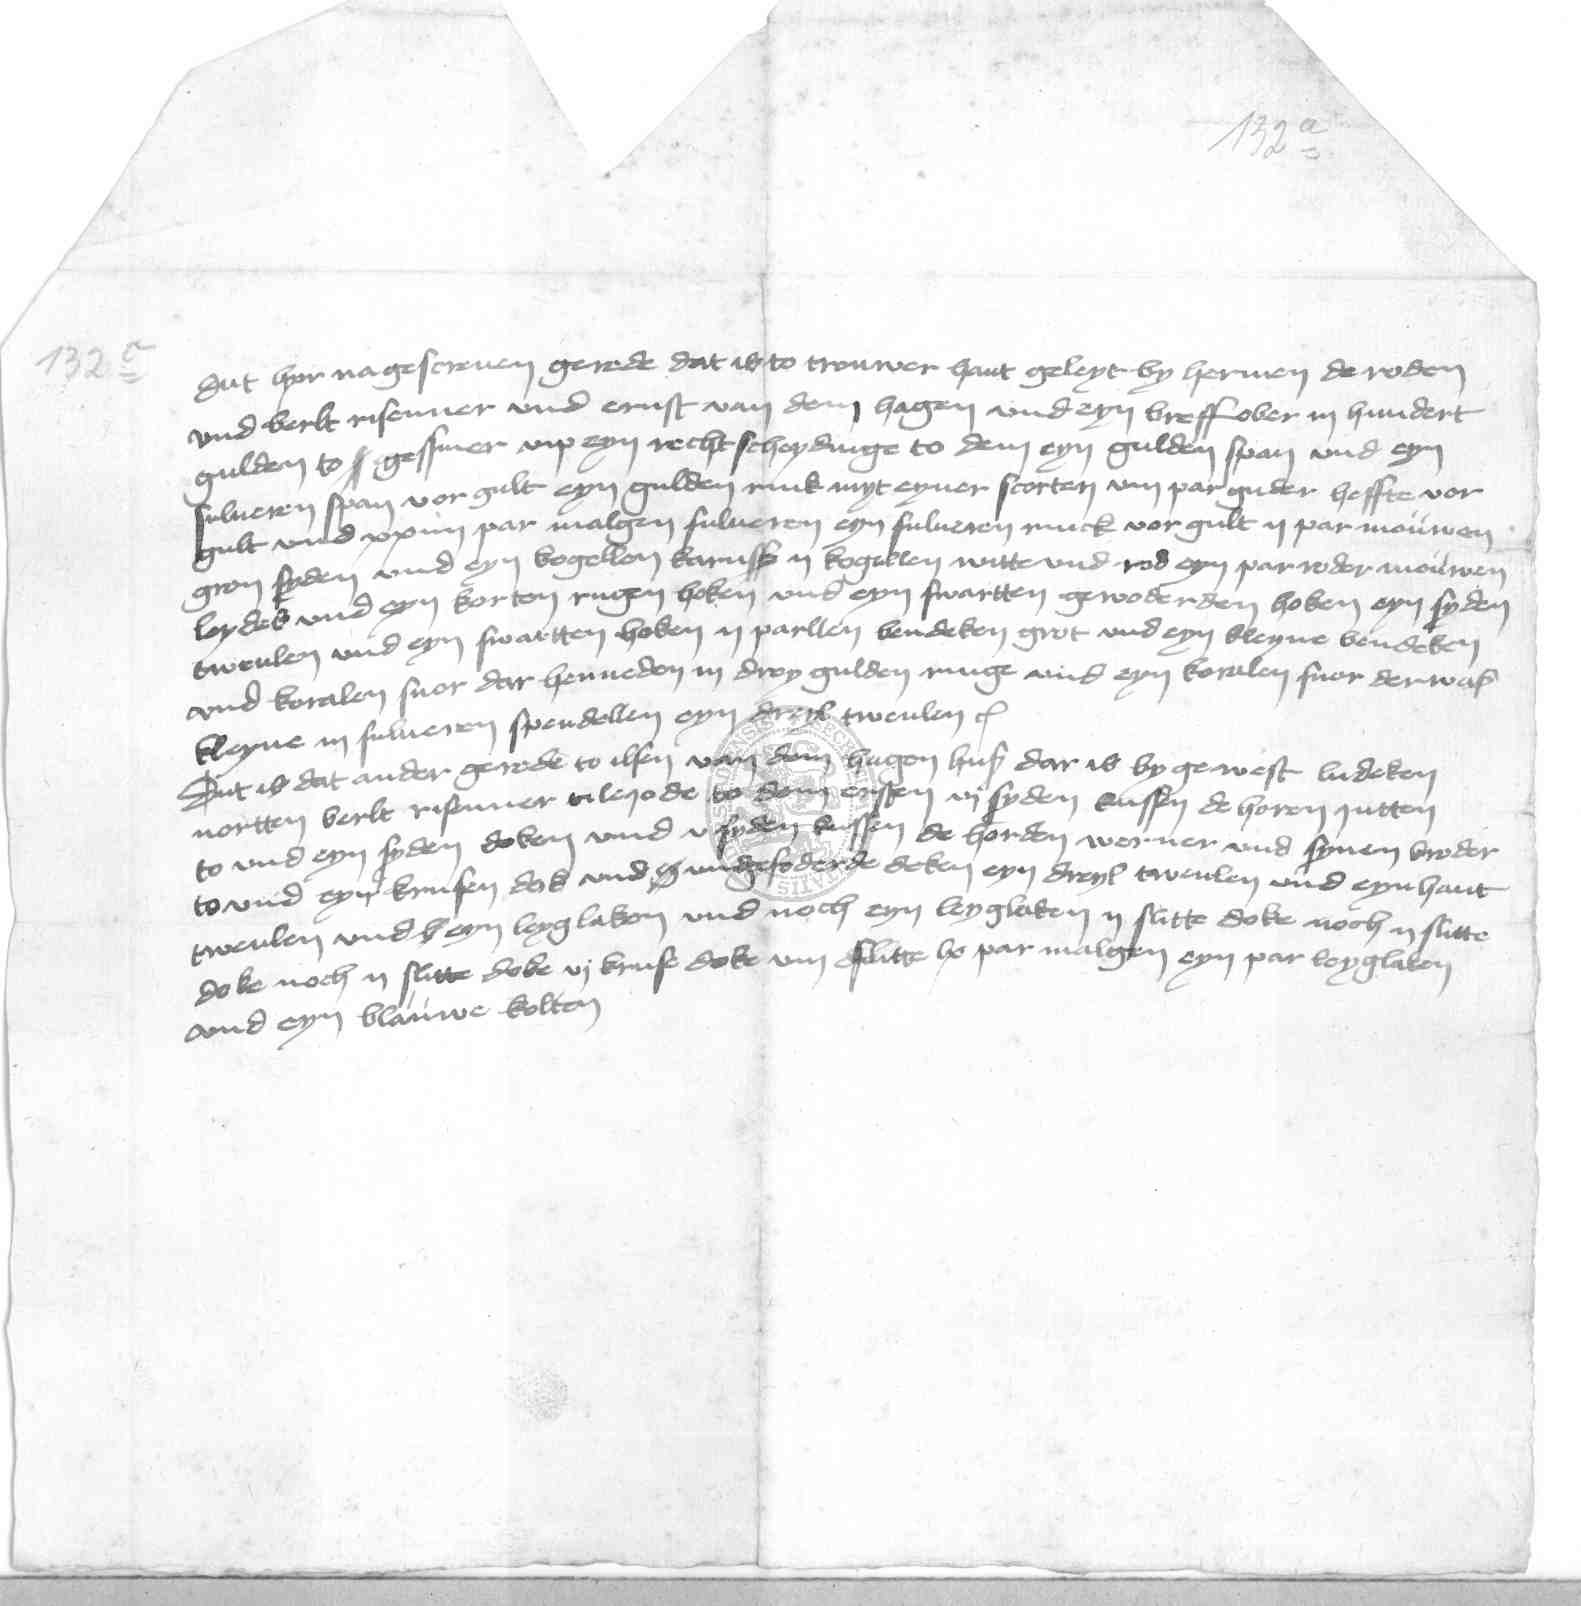 132 a
132 a
Dut hyr nagescreuen gerede dat is to trouwer hant geleyt by hermen de roden
vnd berlt risenner vnd ernst van dem hagen vnd eyn breff ober iij hundert
gulden to gessmer vp eyn recht scheydinge to dem eyn gulden span vnd eyn
sulueren span vor gult eyn gulden rink myt eyner scorten viij par guder heffte vor
gult vnd xxiiij par malgen sulueren eyn sulueren rinck vor gult ij par mouwen
gron syden vnd eyn kogellen karnss ij kogellen witte vnd rod eyn par roder mouwen
leydes vnd eyn korten rugen hoken vnd eyn swartten gevoderden hoken eyn syden
tweulen vnd eyn swartten hoken ij parllen bendeken grot vnd eyn kleyne bendeken
vnd koralen snor dar henneden iij drey gulden ringe vnd eyn koralen snor der was
kleyne iij sulueren spendellen eyn dreyl tweulen
Dut is dat ander gerede to ilsen van dem hagen huss dar is by gewest ludeken
nortten berlt risenner tilerode to dem ersten vj syden kussen de horen jutten
to vnd eyn syden doken vnd v syden kussen de horden werner vnd synen broder
to vnd eyn krusen dok vnd vndgefoderde deken eyn dreyl tweulen vnd eyn hant
tweulen vnd eyn leyglaken vnd noch eyn leyglaken ij slitte doke noch ij slitte
doke noch ij slitte doke vj kruse doke viij slitte he par malgen eyn par leyglaken
vnd eyn blauwe kolten